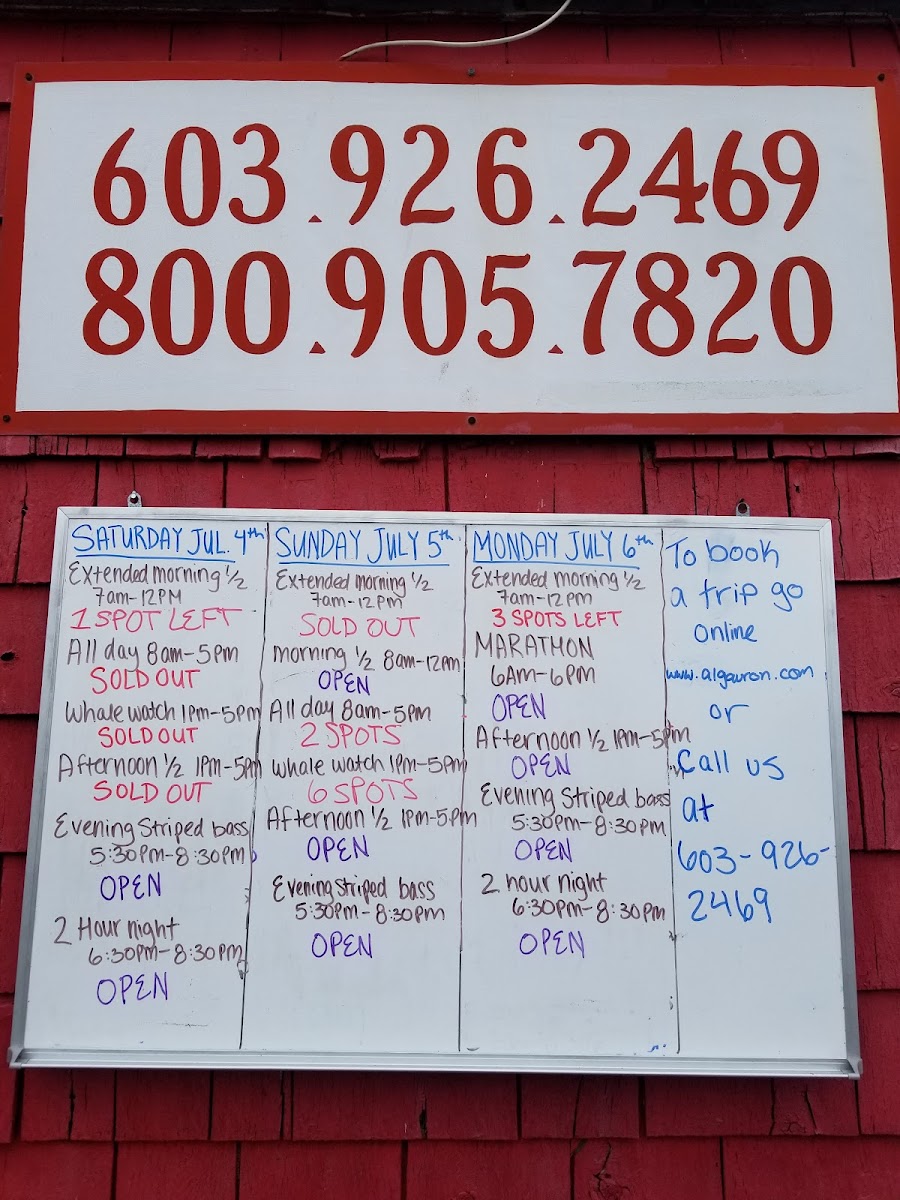 603.926.2469
800.905.7820
SATURDAY JUL. 4th
Extended morning 1/2
7am-12PM
1 SPOT LEFT
All day 8am-5pm
SOLD OUT
Whale watch 1pm-5pm
SOLD OUT
Afternoon 1/2 1PM-5pm
SOLD OUT
Evening Striped bass
5:30PM-8:30PM
OPEN
2 Hour night
6:30PM-8:30PM
OPEN
SUNDAY JULY 5th
Extended morning 1/2
7am-12PM
SOLD OUT
morning 1/2 8am-12pm
OPEN
All day 8am-5pm
2 SPOTS
whale watch 1PM-5PM
6 SPOTS
Afternoon 1/2 1PM-5PM
OPEN
Evening striped bass
5:30PM-8:30PM
OPEN
MONDAY JULY 6th
Extended morning 1/2
7am-12PM
3 SPOTS LEFT
MARATHON
6AM-6PM
OPEN
Afternoon 1/2 1PM-5pm
OPEN
Evening Striped bass
5:30PM-8:30PM
OPEN
2 hour night
6:30PM-8:30PM
OPEN
To book
a trip go
online
www.algauron.com
or
Call us
at
603-926-
2469